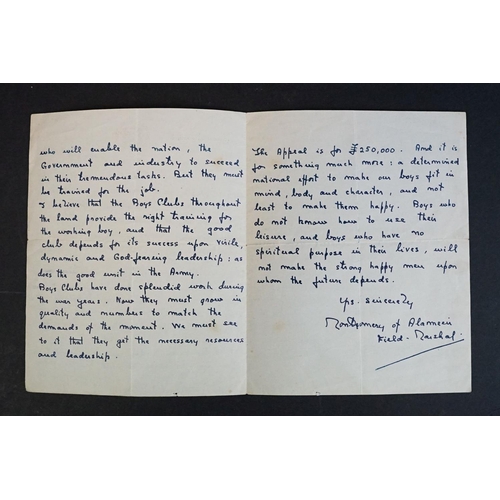 who will enable the nation, the
Government and industry to succeed
in their tremendous tasks. But they must
be trained for the job.
I believe that the Boys Clubs throughout
the land provide the right training for
the working boy, and that the good
club depends for its success upon virile,
dynamic and God-fearing leadership: as
does the good unit in the Army.
Boys Clubs have done splendid work during
the war years. Now they must grow in
quality and numbers to match the
demands of the moment. We must see
to it that they get the necessary resources
and leadership.
The Appeal is for £250,000. And it is
for something much more: a determined
national effort to make our boys fit in
mind, body and character, and not
least to make them happy. Boys who
do not know how to use their
leisure, and boys who have no
spiritual purpose in their lives, will
not make the strong happy men upon
whom the future depends.
Yrs. sincerely
Montgomery of Alamein
Field-Marshal